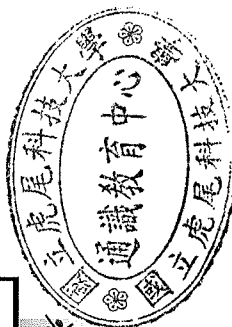 國立虎尾科技大學
國立虎尾科技大學
通識教育中心